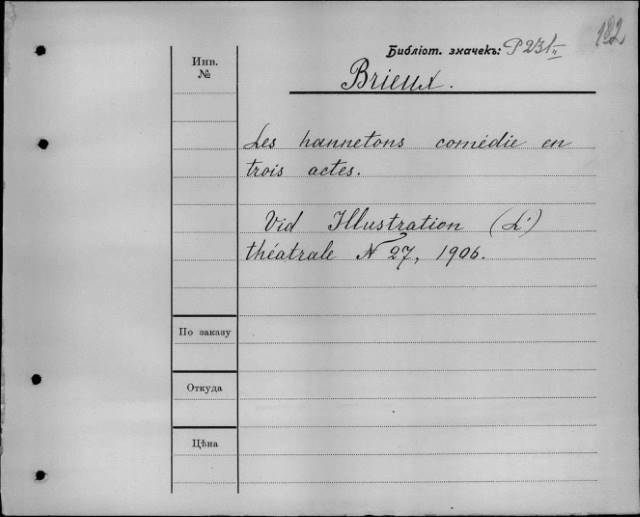 122
Библіот. значекъ: P 231
Инв.
№
Brieux.
Les hannetons comédie en
trois actes.
Vid Illustration (L')
théatrale N 27, 1906.
По заказу
Откуда
Цѣна